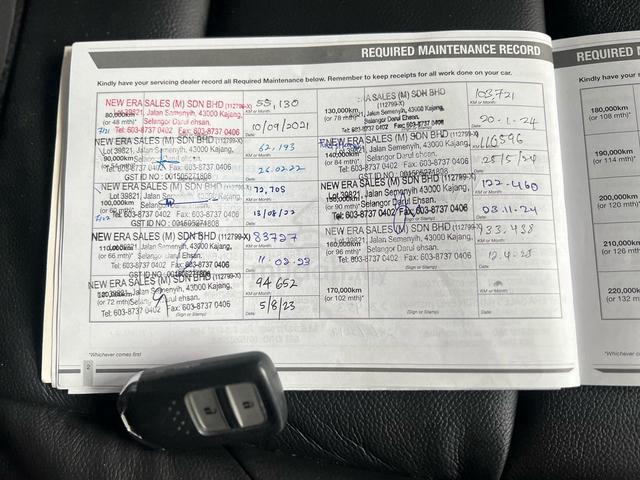 REQUIRED MAINTENANCE RECORD
Kindly have your servicing dealer record all Required Maintenance below. Remember to keep receipts for all work done on your car.
NEW ERA SALES (M) SDN BHD (112799-X)
Lot 39821, Jalan Semenyih, 43000 Kajang,
80,000km
(or 48 mth)*
Selangor Darul Ehsan.
Tel: 603-8737 0402 Fax: 603-8737 0406
55,130
KM or Month
10/09/2021
Date
NEW ERA SALES (M) SDN BHD (112799-X)
Lot 39821, Jalan Semenyih, 43000 Kajang,
90,000km
Selangor Darul Ehsan.
Tel: 603-8737 0402 Fax: 603-8737 0406
GST ID NO : 001505271808
62,193
26.02.22
NEW ERA SALES (M) SDN BHD (112799-X)
Lot 39821, Jalan Semenyih, 43000 Kajang,
100,000km
Tel: 603-8737 0402 Fax: 603-8737 0406
GST ID NO : 001505271808
72,705
13/08/22
NEW ERA SALES (M) SDN BHD (112799-X)
Lot 39821, Jalan Semenyih, 43000 Kajang,
110,000km
(or 66 mth)*
Selangor Darul Ehsan.
Tel: 603-8737 0402 Fax: 603-8737 0406
GST ID NO : 001505271808
83727
11.02.23
NEW ERA SALES (M) SDN BHD (112799-X)
Lot 39821, Jalan Semenyih, 43000 Kajang,
120,000km
(or 72 mth)*
Selangor Darul Ehsan.
Tel: 603-8737 0402 Fax: 603-8737 0406
94652
KM or Month
5/8/23
Date
*Whichever comes first
2
130,000km
(or 78 mth)*
SALES (M) SDN BHD
(112799-X)
Jalan Semenyih, 43000 Kajang,
Selangor Darul Ehsan.
Tel: 603-8737 0402 Fax: 603-8737 0406
103721
KM or Month
20-1-24
Date
NEW ERA SALES (M) SDN BHD (112799-X)
Jalan Semenyih, 43000 Kajang,
140,000km
(or 84 mth)*
Selangor Darul Ehsan.
Tel: 603-8737 0402 Fax: 603-8737 0406
GST ID NO : 001505271808
110596
25/5/24
NEW ERA SALES (M) SDN BHD (112799-X)
Lot 39821, Jalan Semenyih, 43000 Kajang,
150,000km
(or 90 mth)*
Selangor Darul Ehsan.
Tel: 603-8737 0402 Fax: 603-8737 0406
122-460
03.11-24
NEW ERA SALES (M) SDN BHD (112799-X)
Lot 39821, Jalan Semenyih, 43000 Kajang,
160,000km
(or 96 mth)*
Selangor Darul Ehsan.
Tel: 603-8737 0402 Fax: 603-8737 0406
(Sign or Stamp)
133.438
12.4.25
Date
170,000km
(or 102 mth)*
(Sign or Stamp)
KM or Month
Date
REQUIRED M
Kindly have your
180,000km
(or 108 mth)*
190,000km
(or 114 mth)*
200,000km
(or 120 mth)*
210,000km
(or 126 mth)*
220,000km
(or 132 mth)*
*Whichever comes